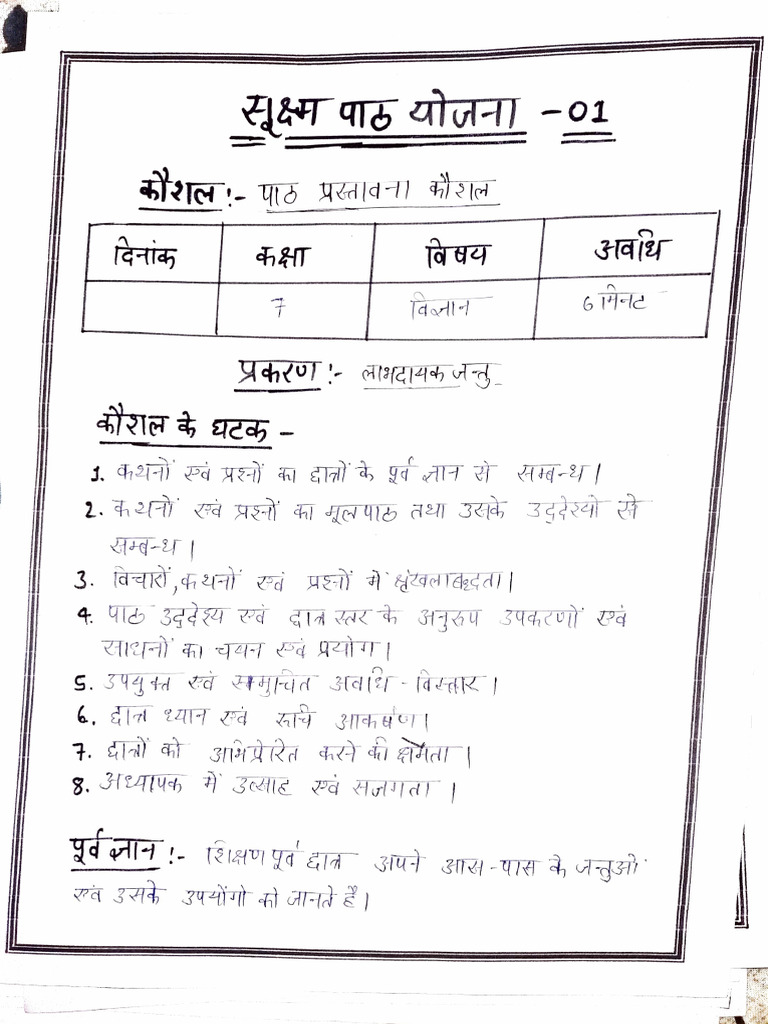 सूक्ष्म पाठ योजना - 01
कौशल :- पाठ प्रस्तावना कौशल
दिनांक कक्षा विषय अवधि
7 विज्ञान 6 मिनट
प्रकरण :- लाभदायक जन्तु
कौशल के घटक -
1. कथनों एवं प्रश्नों का छात्रों के पूर्व ज्ञान से सम्बन्ध।
2. कथनों एवं प्रश्नों का मूलपाठ तथा उसके उद्देश्यो से
सम्बन्ध।
3. विचारों, कथनों एवं प्रश्नों में श्रृंखलाबद्धता।
4. पाठ उद्देश्य एवं छात्र स्तर के अनुरूप उपकरणों एवं
साधनों का चयन एवं प्रयोग।
5. उपयुक्त एवं समुचित अवधि - विस्तार।
6. छात्र ध्यान एवं रूचि आकर्षण।
7. छात्रों को अभिप्रेरित करने की क्षमता।
8. अध्यापक में उत्साह एवं सजगता।
पूर्व ज्ञान :- शिक्षण पूर्व छात्र अपने आस-पास के जन्तुओं
एवं उसके उपयोंगो को जानते है।